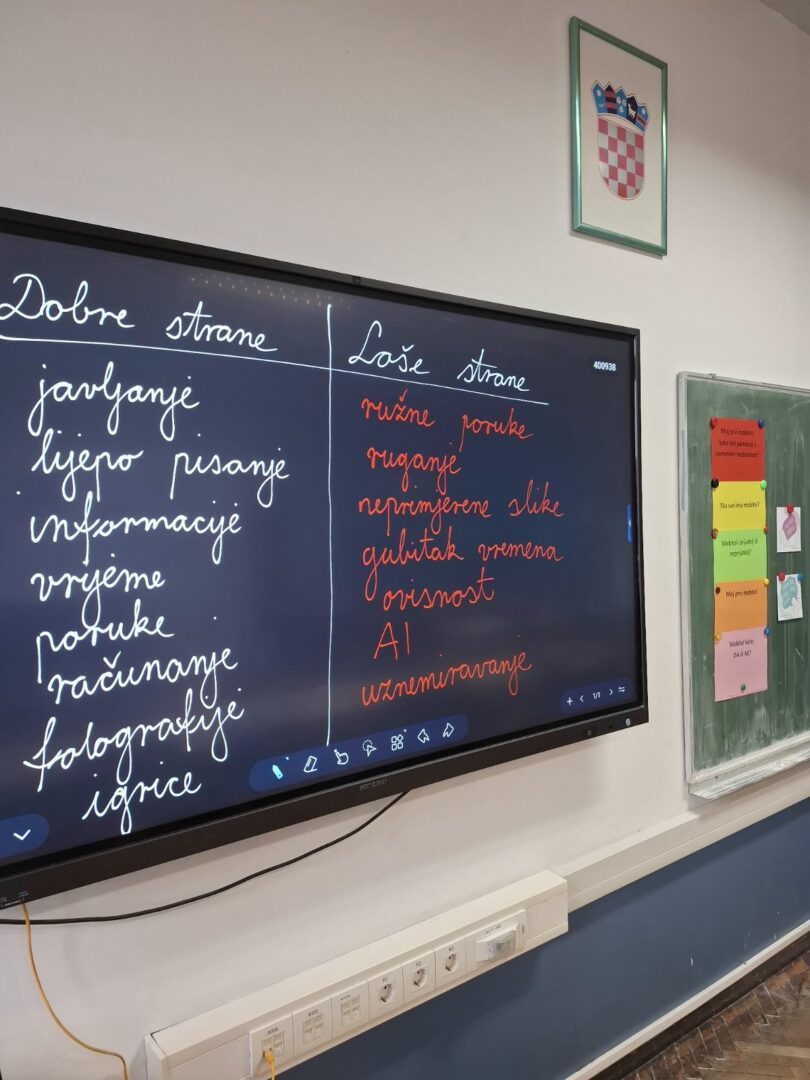 Dobre strane
javljanje
lijepo pisanje
informacije
vrijeme
poruke
računanje
fotografije
igrice
Loše strane
ružne poruke
ruganje
neprimjerene slike
gubitak vremena
ovisnost
AI
uznemiravanje
400938
1/1
Moj prvi mobitel-
kako biti pametan s
pametnim mobitelom?
Tko sve ima mobitel?
Mobitel- prijatelj ili
neprijatelj?
Moj prvi mobitel
Mobitel kao:
DA ili NE?